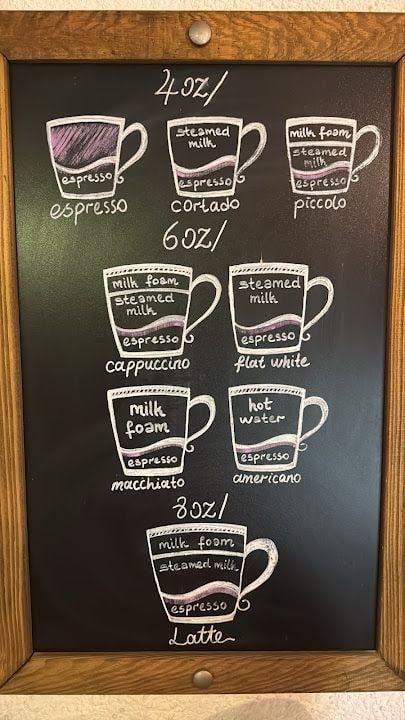 4oz/
espresso
espresso
steamed
milk
espresso
cortado
milk foam
steamed
milk
espresso
piccolo
6oz/
milk foam
steamed
milk
espresso
cappuccino
steamed
milk
espresso
flat white
milk
foam
espresso
macchiato
hot
water
espresso
americano
8oz/
milk foam
steamed milk
espresso
Latte